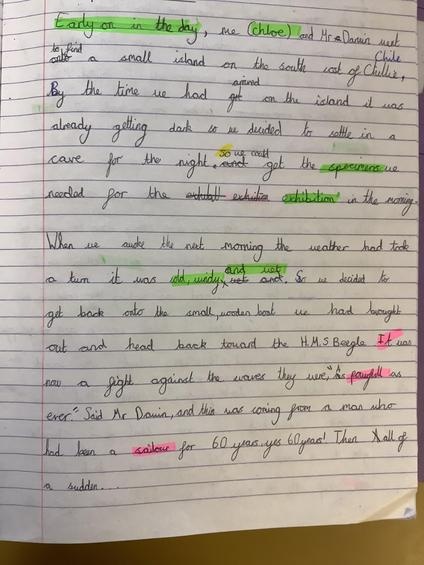 Early on in the day, me (chloe) and Mr Darwin went
to find
onto a small island on the south cost of Chillie,
Chile
By the time we had got on the island it was
arrived
already getting dark so we decided to settle in a
cave for the night. and get the specimens we
so we could
needed for the exhibition in the morning.
When we awoke the next morning the weather had took
a turn it was cold, windy, wet and. So we decided to
and wet
get back onto the small, wooden boat we had brought
out and head back toward the H.M.S Beegle. It was
now a fight against the waves they were, "As powerfull as
ever." Said Mr Darwin, and this was coming from a man who
had been a sailour for 60 years, yes 60 years! Then all of
a sudden...